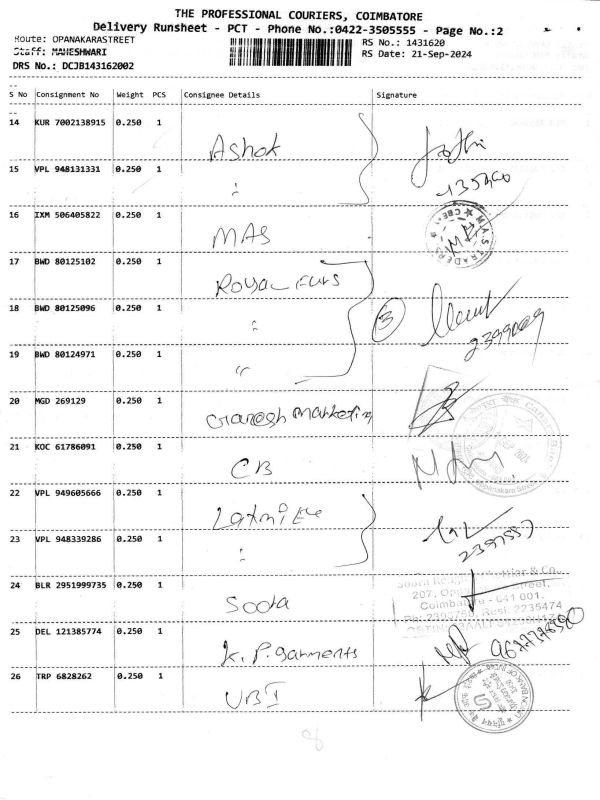 THE PROFESSIONAL COURIERS, COIMBATORE
Delivery Runsheet - PCT - Phone No.:0422-3505555 - Page No.:2
Route: OPANAKARASTREET
Staff: MAHESHWARI
DRS No.: DCJB143162002
RS No.: 1431620
RS Date: 21-Sep-2024
S No Consignment No Weight PCS Consignee Details Signature
14 KUR 7002138915 0.250 1 Ashok
15 VPL 948131331 0.250 1 "
16 IXM 506405822 0.250 1 MAS
17 BWD 80125102 0.250 1 Royal Furs
18 BWD 80125096 0.250 1 " 3
2399089
19 BWD 80124971 0.250 1 "
20 MGD 269129 0.250 1 Ganesh Marketing
21 KOC 61786091 0.250 1 CB
22 VPL 949605666 0.250 1
23 VPL 948339286 0.250 1 "
2397557
24 BLR 2951999735 0.250 1 Soora
& Co.,
207,
Street,
Coimbatore - 641 001.
Resi: 2235474
25 DEL 121385774 0.250 1 K. P. Garments
26 TRP 6828262 0.250 1 UBI
8